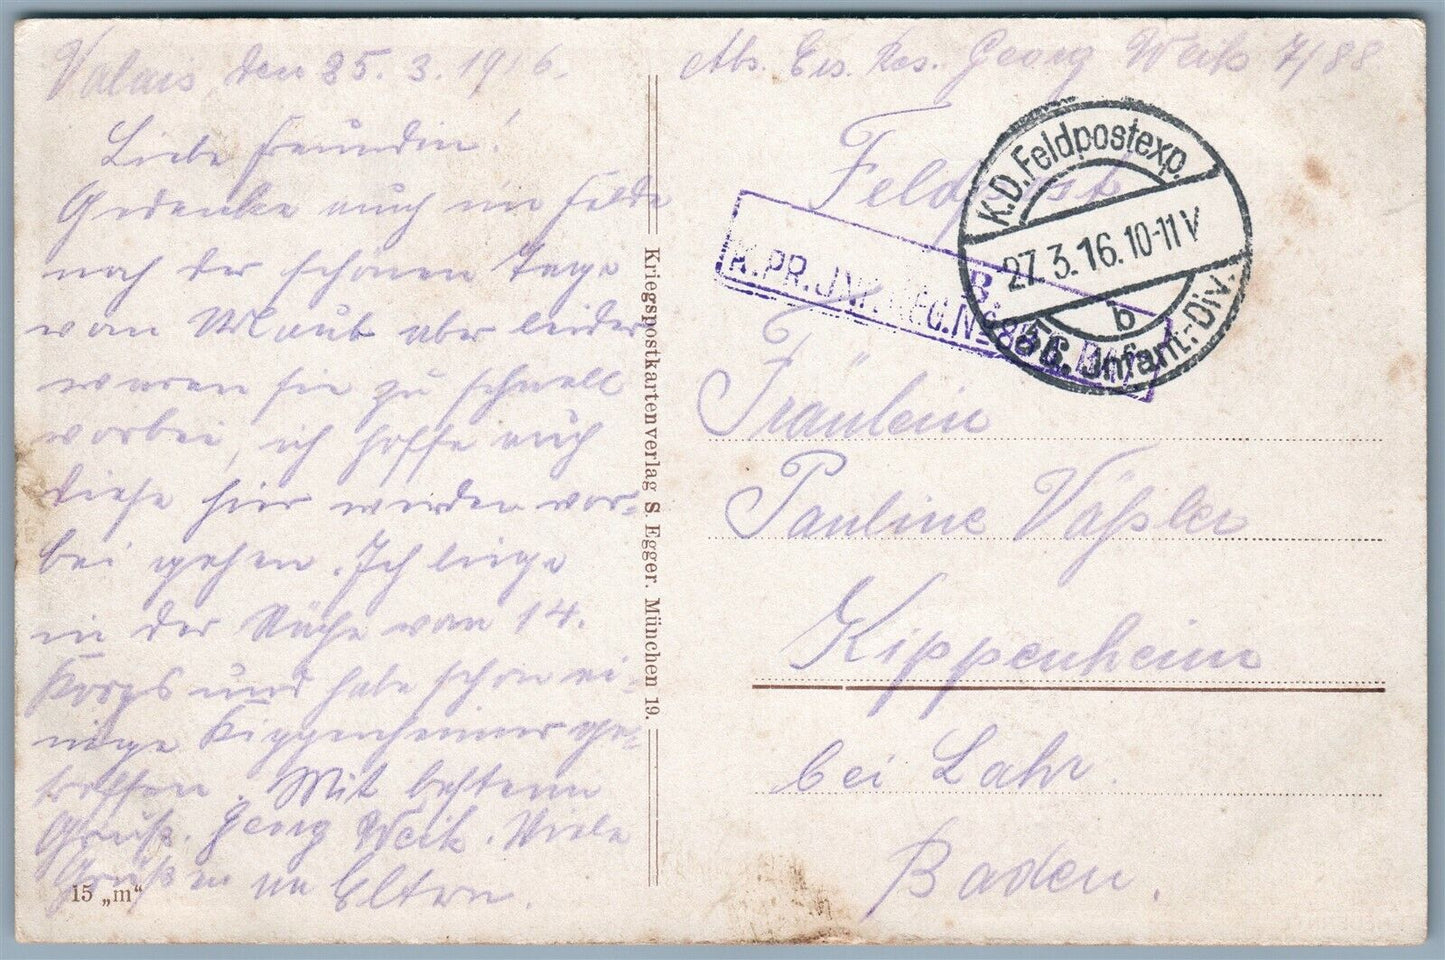 den 25. 3. 1916.
Liebe Freundin!
Gedenke auch im Felde
noch der schönen Tage
von Urlaub aber leider
waren sie zu schnell
vorbei, ich hoffe auch
diese hier werden vor-
bei gehen. Ich liege
in der Nähe von 14.
Korps und habe schon ei-
nige Kippenheimer ge-
troffen. Mit bestem
Gruß. Georg Weik. Viele
Grüße an Eltern.
15 „m“
Kriegspostkartenverlag S. Egger. München 19.
Abs. Ers. Res. Georg Weik 7/88
Feldpost
K.D. Feldpostexp.
27.3.16.10-11V
b
56. Infant.-Div.
K.PR.INF.REG.Nº88
Fräulein
Pauline Väßler
Kippenheim
bei Lahr.
Baden.